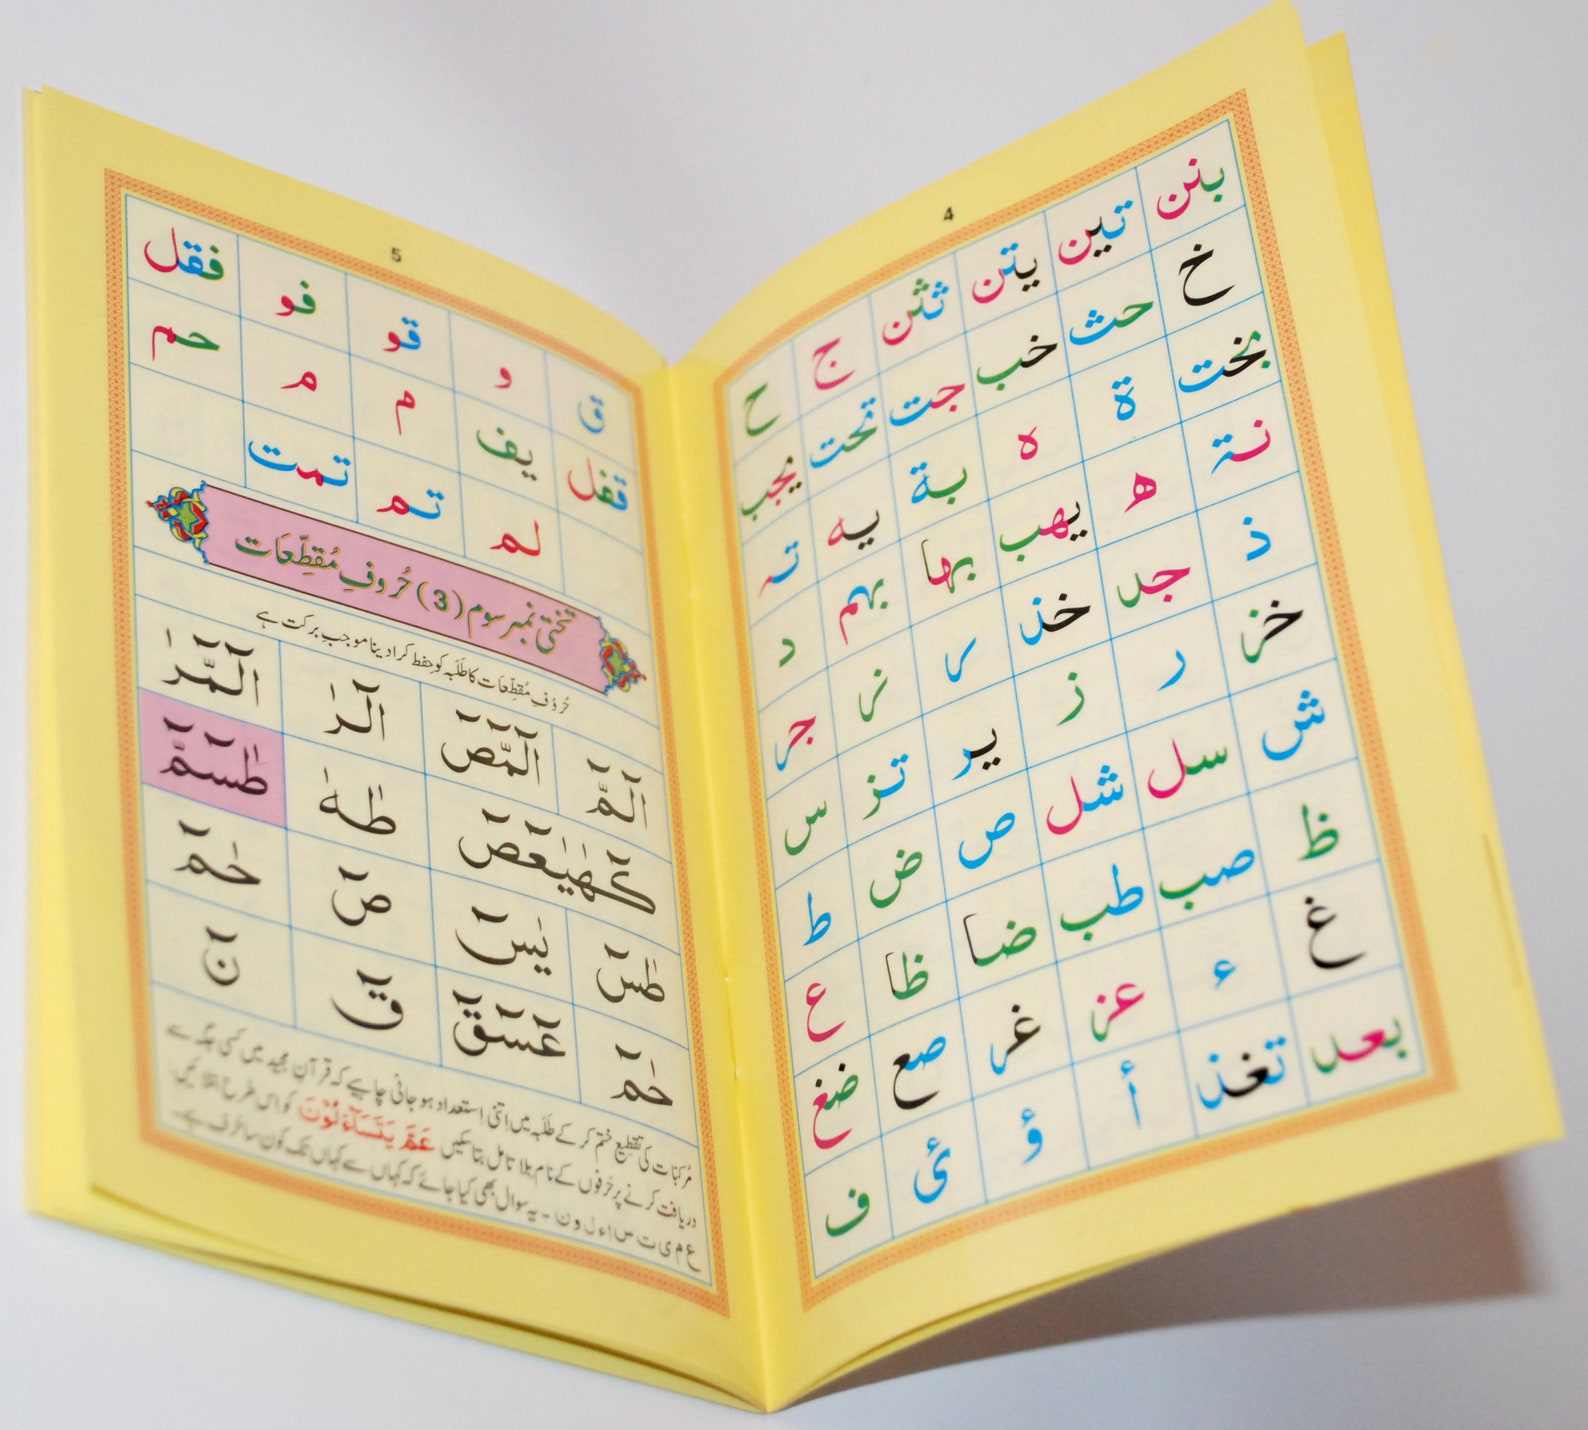 4
بنن تين يتن ثثن ج ح
خ حث خب جت تحت يجب
بخت ة ه بة يه ته
نة ه يهب بها بهم د
ذ جد خذ ر ز جر
خز ر ز ير تز س
ش سل شل ص ض ط
ظ صب طب ضا ظا ع
غ ء عز غر صع ضغ
بعد تغذ أ ؤ ئ ف
5
ق و قو فو فقل
قفل يف م م حم
لم تم تمت
تختی نمبر سوم (3) حُروفِ مُقطِّعَات
حُروفِ مُقطِّعات کا طلَبہ کو حِفظ کرا دینا موجبِ برکت ہے
الٓمّٓ الٓمّٓصٓ الٓرٰ الٓمّٓرٰ
كٓهٰيٰعٓصٓ طٰهٰ طٰسٓمّٓ
طٰسٓ يٰسٓ صٓ حٰمٓ
حٰمٓ عٓسٓقٓ قٓ نٓ
مرکبات کی تقطیع ختم کر کے طلَبہ میں اتنی استعداد ہو جانی چاہیے کہ قرآنِ مجید میں کسی جگہ سے
دریافت کرنے پر حرفوں کے نام بلا تامل بتا سکیں عَمَّ يَتَسَآءَلُوْنَ کو اس طرح
ع م ی ت س ا ء ل و ن - یہ سوال بھی کیا جائے کہ کہاں سے کہاں تک کون سا حرف ہے۔